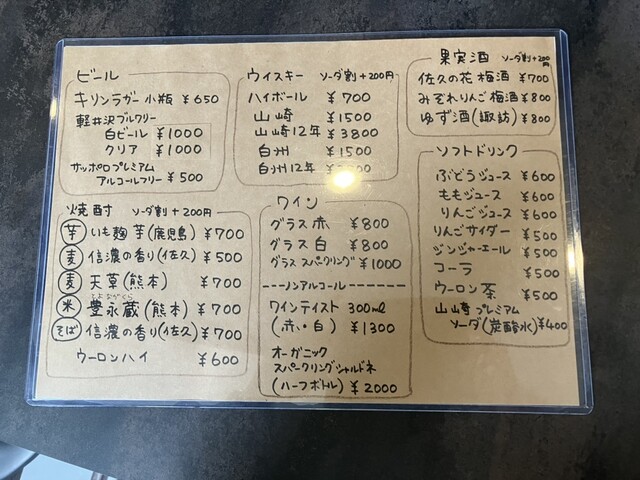 ビール
キリンラガー小瓶 ¥650
軽井沢ブルワリー
白ビール ¥1000
クリア ¥1000
サッポロプレミアム
アルコールフリー ¥500
焼酎 ソーダ割+200円
芋 いも麹 芋(鹿児島) ¥700
麦 信濃の香り(佐久) ¥500
麦 天草(熊本) ¥700
米 豊永蔵(熊本) ¥700
そば 信濃の香り(佐久) ¥700
ウーロンハイ ¥600
ウイスキー ソーダ割+200円
ハイボール ¥700
山崎 ¥1500
山崎12年 ¥3800
白州 ¥1500
白州12年
ワイン
グラス赤 ¥800
グラス白 ¥800
グラススパークリング ¥1000
ノンアルコール
ワインテイスト 300ml
(赤・白) ¥1300
オーガニック
スパークリングシャルドネ
(ハーフボトル) ¥2000
果実酒 ソーダ割+200円
佐久の花 梅酒 ¥700
みぞれりんご梅酒 ¥800
ゆず酒(諏訪) ¥800
ソフトドリンク
ぶどうジュース ¥600
ももジュース ¥600
りんごジュース ¥600
りんごサイダー ¥500
ジンジャーエール ¥500
コーラ ¥500
ウーロン茶 ¥500
山崎プレミアム
ソーダ(炭酸水) ¥400